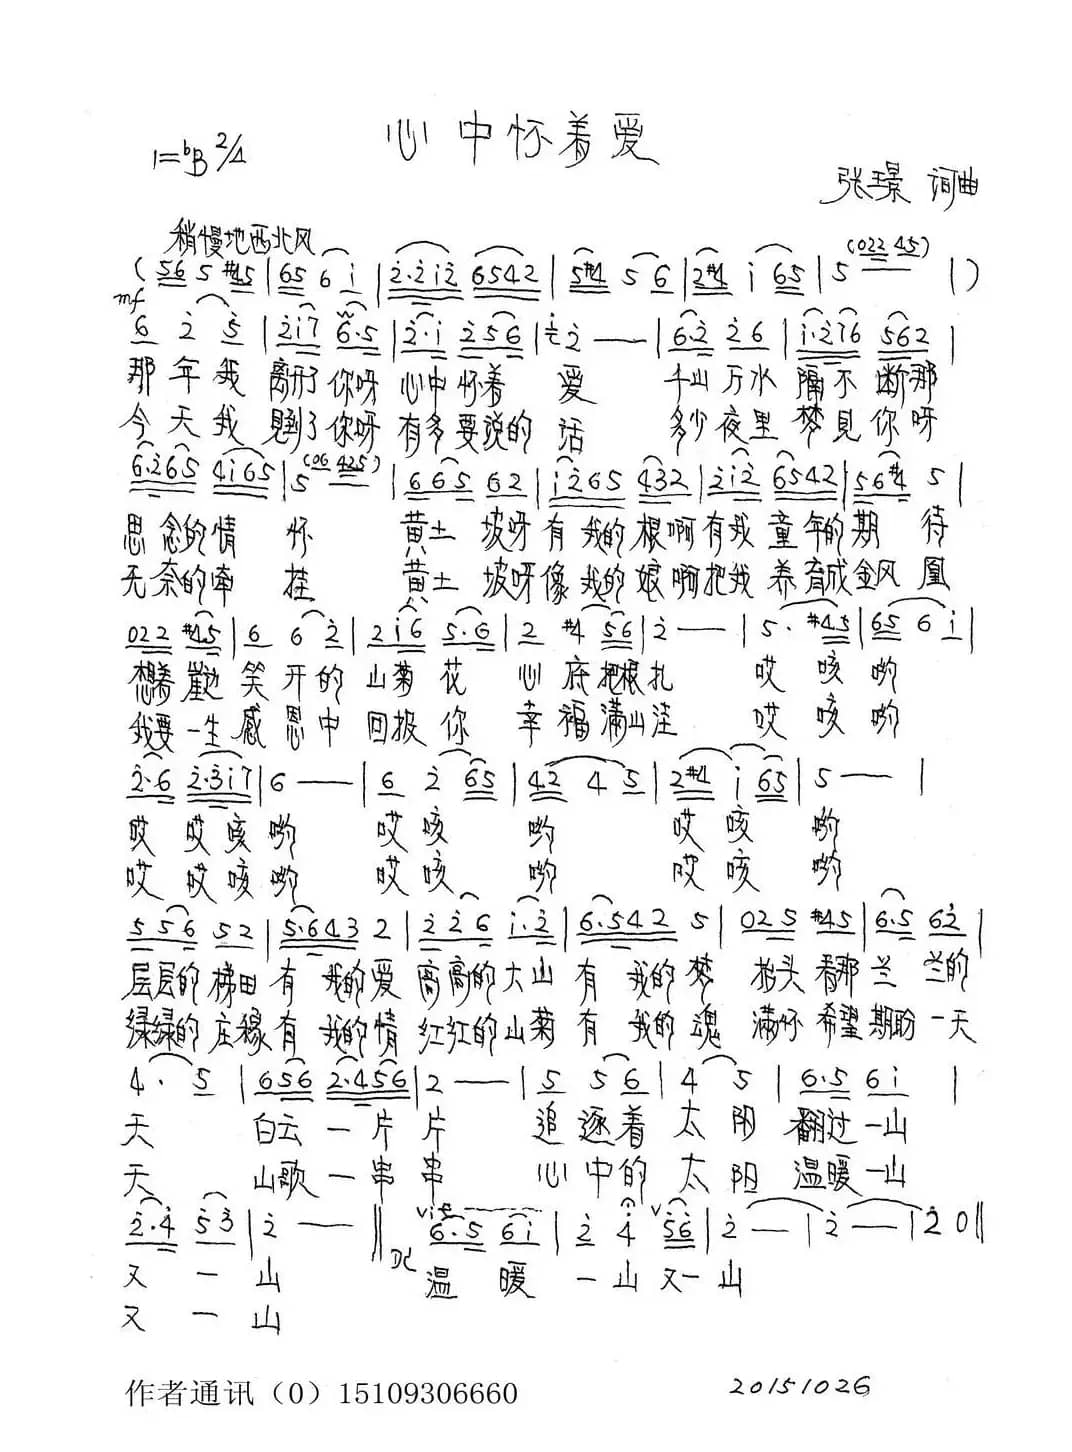 心中怀着爱
1=bB 2/4
张璟 词曲
稍慢地西北风
(022 45)
( 56 5 #45 | 65 6 i | 2·2i2 6542 | 5#4 5 6 | 2#4 i 65 | 5 | )
mf
6 2 5 | 2i7 6·5 | 2·i 256 | 2 — — | 6·2 26 | i·276 562 |
那年我 离开了 你呀 心中怀着 爱 千山万水 隔不断那
今天我 見到了你呀 有多要说的 话 多少夜里 梦見你呀
6·265 4i65 | 5 (06 425) | 665 62 | i265 432 | 2i2 6542 | 56#4 5 |
思念的情 怀 黄土 坡呀有我的根啊有我童年的期 待
无奈的牵 挂 黄土 坡呀像我的娘啊把我养育成金风 凰
022 #45 | 6 6 2 | 2i6 5·6 | 2 #4 56 | 2 — — | 5· #45 | 65 6 i |
想着 歡 笑 开的 山菊 花 心 底把根扎 哎 咳 哟
我要一生 感 恩中 回报 你 幸 福满山洼 哎 咳 哟
2·6 2·3i7 | 6 — — | 6 2 65 | 42 4 5 | 2#4 i 65 | 5 — — |
哎 哎咳哟 哎咳 哟 哎咳 哟
哎 哎咳哟 哎咳 哟 哎咳 哟
556 52 | 5·643 2 | 226 i·2 | 6·542 5 | 025 #45 | 6·5 62 |
层层的梯田有 我的爱 高高的大山有 我的梦 抬头看那兰 兰的
绿绿的庄稼有 我的情 红红的山菊有 我的魂 满怀希望期盼一天
4· 5 | 656 2·456 | 2 — — | 5 5 6 | 4 5 | 6·5 6i |
天 白云一片片 追逐着 太 阳 翻过一山
天 山歌一串串 心中的 太 阳 温暖一山
2·4 53 | 2 — — ‖ 6·5 6i | 2 4 V 56 | 2 — | 2 — | 2 0 ‖
DC
又 一 山 温 暖 一山又一山
又 一 山
作者通讯（0）15109306660
20151026